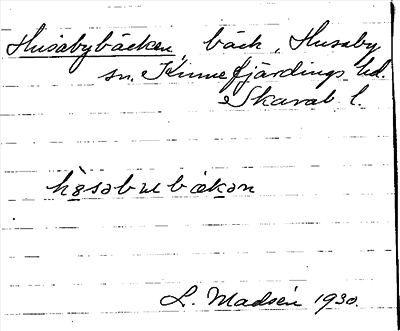 Husabybäcken, bäck, Husaby
sn. Kinnefjärdings hd.
Skarab. l.
L. Madsén 1930.